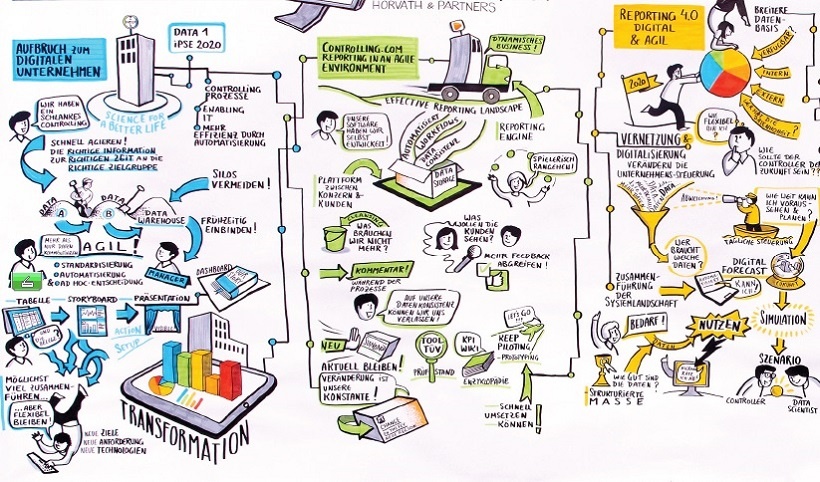 HORVATH & PARTNERS
AUFBRUCH ZUM
DIGITALEN
UNTERNEHMEN
DATA 1
iPSE 2020
WIR HABEN
EIN
SCHLANKES
CONTROLLING
SCIENCE FOR
A BETTER LIFE
CONTROLLING
PROZESSE
ENABLING
IT
MEHR
EFFIZIENZ DURCH
AUTOMATISIERUNG
SCHNELL AGIEREN!
DIE RICHTIGE INFORMATION
ZUR RICHTIGEN ZEIT AN DIE
RICHTIGE ZIELGRUPPE
SILOS
VERMEIDEN!
DATA
A
DATA
B
DATA
WAREHOUSE
FRÜHZEITIG
EINBINDEN!
MEHR ALS
NUR DATEN
AGIL!
STANDARDISIERUNG
AUTOMATISIERUNG
& AD HOC-ENTSCHEIDUNG
MANAGER
DASHBOARD
TABELLE
STORYBOARD
PRÄSENTATION
ACTION
SETUP
MÖGLICHST
VIEL ZUSAMMEN-
FÜHREN...
...ABER
FLEXIBEL
BLEIBEN!
NEUE ZIELE
NEUE ANFORDERUNG
NEUE TECHNOLOGIEN
TRANSFORMATION
CONTROLLING.COM
REPORTING IN AN AGILE
ENVIRONMENT
DYNAMISCHES
BUSINESS!
EFFECTIVE REPORTING LANDSCAPE
UNSERE
SOFTWARE
HABEN WIR
SELBST
ENTWICKELT!
AUTOMATISIERT
WORKFLOWS
DATA
KONSISTENZ
DATA
STORAGE
REPORTING
ENGINE
SPIELERISCH
RANGEHEN!
PLATTFORM
ZWISCHEN
KONZERN &
KUNDEN
CLEANING
WAS
BRAUCHEN
WIR NICHT
MEHR?
WAS
WOLLEN DIE
KUNDEN
SEHEN?
MEHR FEEDBACK
ABGREIFEN!
KOMMENTAR!
WÄHREND DER
PROZESSE
AUF UNSERE
DATENKONSISTENZ
KÖNNEN WIR UNS
VERLASSEN!
NEU
AKTUELL BLEIBEN!
VERÄNDERUNG IST
UNSERE
KONSTANTE!
CHANGE
TOOL
TÜV
PRÜFSTAND
KPI
WIKI
ENZYKLOPÄDIE
LET'S GO
KEEP
PILOTING
-PROTOTYPING
SCHNELL
UMSETZEN
KÖNNEN!
REPORTING 4.0
DIGITAL
& AGIL
BREITERE
DATEN-
BASIS?
VERFÜGBAR
INTERN
EXTERN
2020
WIE
FLEXIBEL
BIN ICH?
VERNETZUNG &
DIGITALISIERUNG
VERÄNDERN DIE
UNTERNEHMENS-STEUERUNG
WIE
SOLLTE DER
CONTROLLER DER
ZUKUNFT SEIN???
ABWEICHUNG!
WIE WEIT KANN
ICH VORAUS-
SEHEN &
PLANEN?
TÄGLICHE STEUERUNG
WER
BRAUCHT
WELCHE
DATEN?
DIGITAL
FORECAST
KANN
ICH!
ZUSAMMEN-
FÜHRUNG
DER
SYSTEMLANDSCHAFT
SIMULATION
BEDARF!
DATEN
NUTZEN
SZENARIO
WIE GUT SIND
DIE DATEN?
STRUKTURIERTE
MASSE
CONTROLLER
DATA
SCIENTIST